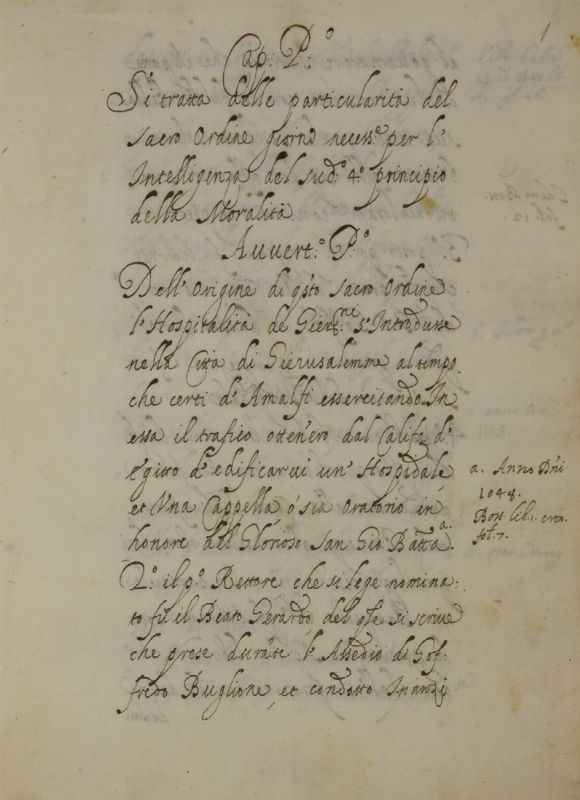 1
Cap: P.º
Si tratta delle particularità del
sacro Ordine giorno necess.º per l'
Intelligenza del sud.º 4.º principio
della Moralità
Auvert.º P.º
Dell' Origine di q̃sto sacro Ordine
l'Hospitalità de Gieros.ne s'Introdusse
nella Città di Gierusalemme al tempo
che certi d'Amalfi essercitando In
essa il trafico otten'ero dal Califa d'
Egitto d'edificarui un' Hospidale,
et Vna Cappella ó sia Oratorio in
honore del Glorioso San Gio Batta a.
2.º il p.º Rettore che si lege nomina:
to fù il Beato Gerardo del q̃le si scriue
che prese durãte l'Assedio di Gof:
fredo Buglione, et condotto Inanzi
a. Anno Dñi
1048.
Bos. lib.
fol. 7.